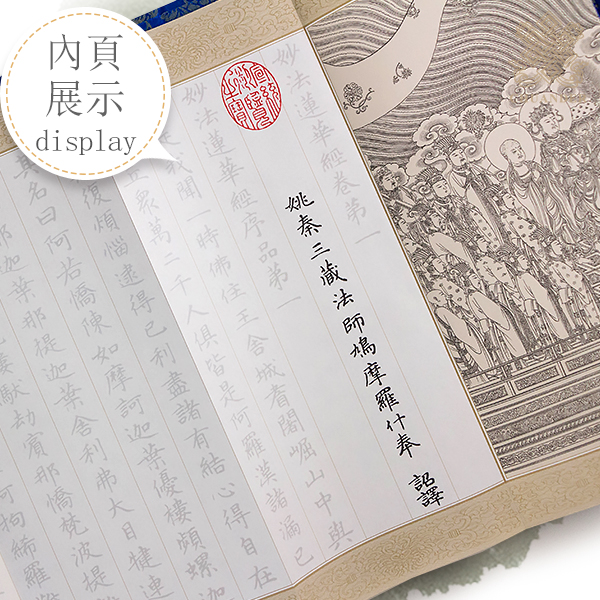 內頁
展示
display
妙法蓮華經卷第一
姚秦三藏法師鳩摩羅什奉 詔譯
妙法蓮華經序品第一
我聞一時佛住王舍城耆闍崛山中與
眾萬二千人俱皆是阿羅漢諸漏已
復煩惱逮得己利盡諸有結心得自在
其名曰阿若憍陳如摩訶迦葉優樓頻螺迦
耶迦葉那提迦葉舍利弗大目犍連
樓馱劫賓那憍梵波提
訶拘絺羅